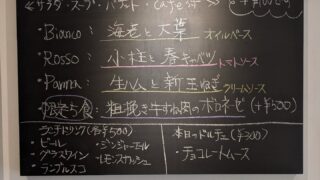 ≪サラダ・スープ・バゲット・Cafe付≫
・Bianco: 海老と大葉 オイルベース
・Rosso: 小柱と春キャベツ トマトソース
・Panna: 生ハムと新玉ねぎ クリームソース
・限定5食: 粗挽き牛すね肉のボロネーゼ (+¥300)
ランチドリンク(各¥500)
・ビール
・グラスワイン
・ランブルスコ
・ジンジャーエール
・レモンスカッシュ
本日のドルチェ(¥300)
・チョコレートムース